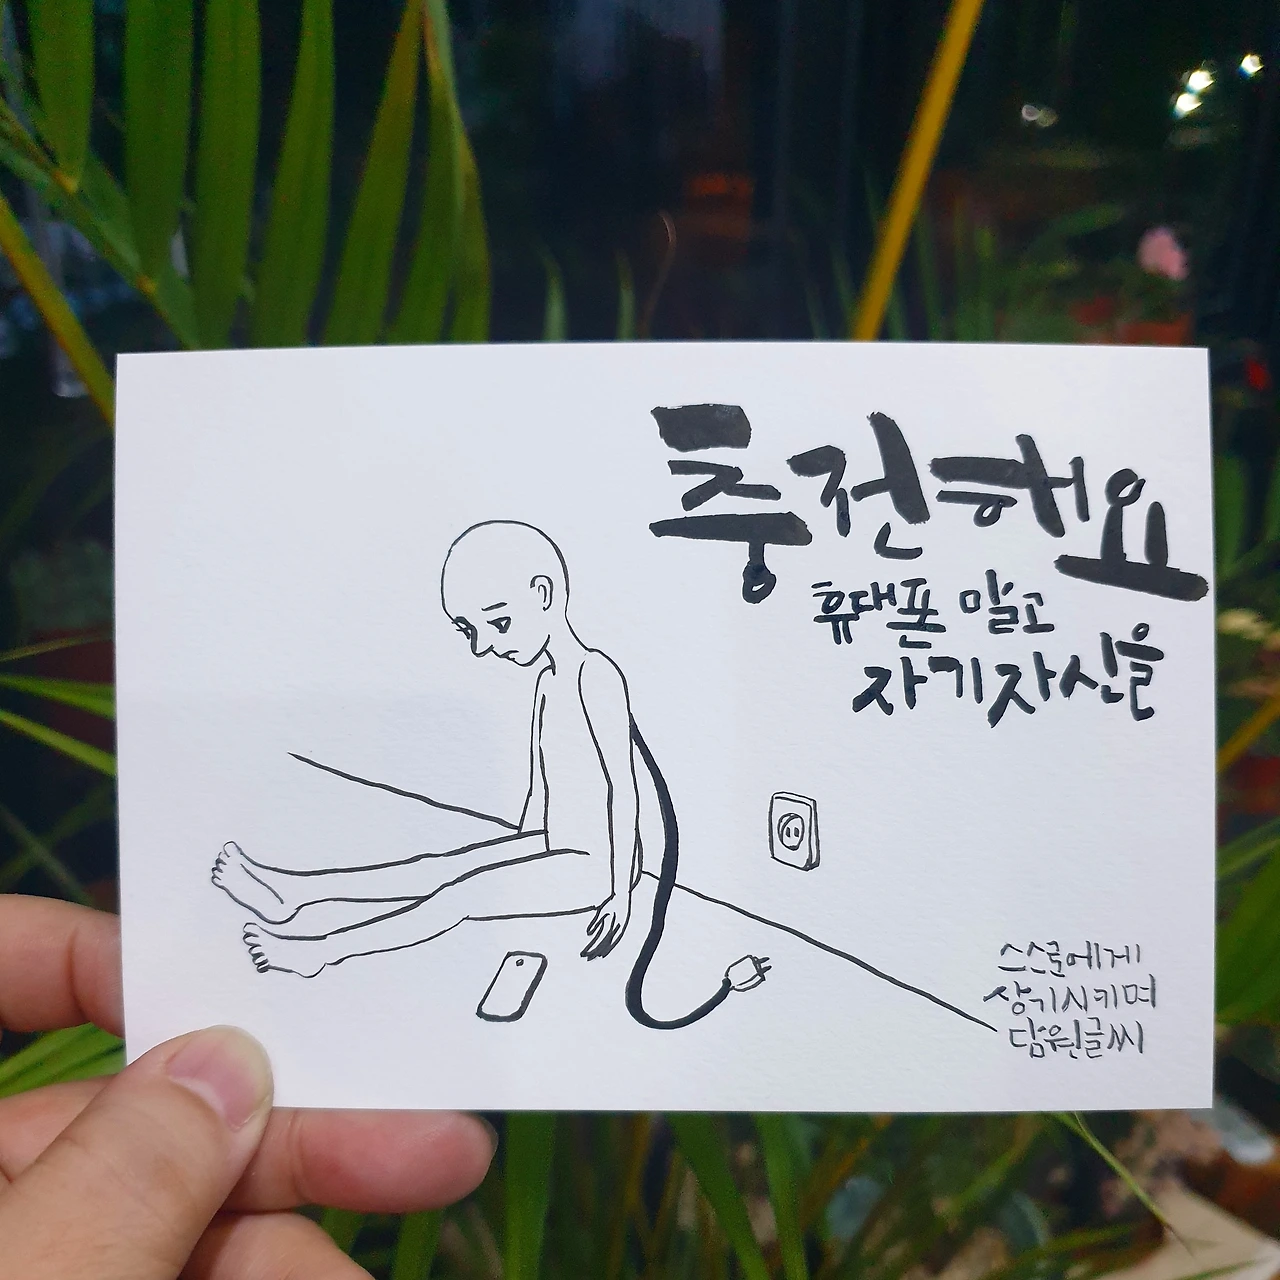 충전해요
휴대폰 말고
자기자신을
스스로에게
상기시키며
담원글씨